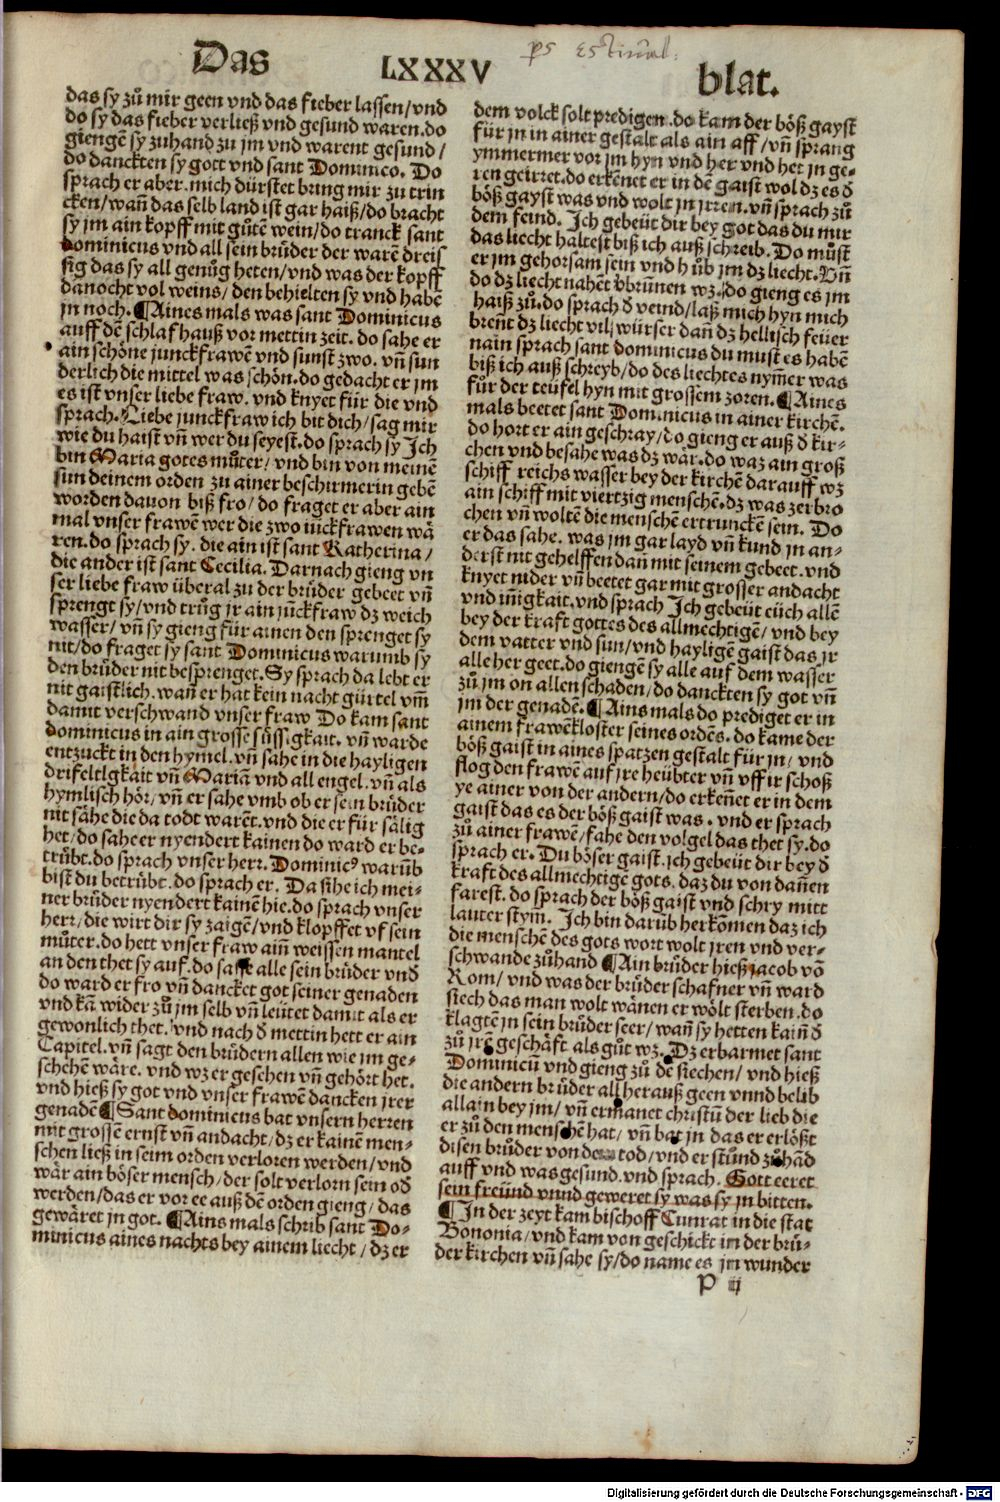 ps estiual.
Das LXXXV blat.
das sy zů mir geen vnd das fieber lassen/vnd
do sy das fieber verließ vnd gesund waren.do
giengē sy zuhand zu jm vnd warent gesund/
do danckten sy gott vnd sant Dominico. Do
sprach er aber.mich dürstet bring mir zu trin
cken/wañ das selb land ist gar haiß/do bracht
sy jm ain kopff mit gůtē wein/do tranck sant
dominicus vnd all sein brüder der warē dreis
sig das sy all genůg heten/vnd was der kopff
danocht vol weins/den behielten sy vnd habē
jn noch.¶Aines mals was sant Dominicus
auff dē schlafhauß vor mettin zeit. do sahe er
ain schöne junckfrawē vnd sunst zwo. vñ sun
derlich die mittel was schön.do gedacht er jm
es ist vnser liebe fraw. vnd knyet für die vnd
sprach.Liebe junckfraw ich bit dich/sag mir
wie du haist vñ wer du seyest.do sprach sy Ich
bin Maria gotes můter/vnd bin von meinē
sun deinem orden zu ainer beschirmerin gebē
worden dauon biß fro/do fraget er aber ain
mal vnser frawē wer die zwo iūckfrawen wä
ren.do sprach sy. die ain ist sant Katherina/
die ander ist sant Cecilia. Darnach gieng vn
ser liebe fraw überal zu der brüder gebeet vñ
sprengt sy/vnd trůg jr ain jūckfraw dz weich
wasser/vñ sy gieng für ainen den sprenget sy
nit/do fraget sy sant Dominicus warumb sy
den brüder nit besprenget.Sy sprach da lebt er
nit gaistlich.wañ er hat kein nacht gürtel vm̄
damit verschwand vnser fraw Do kam sant
dominicus in ain grosse süssigkait. vñ warde
entzuckt in den hymel.vñ sahe in die hayligen
drifeltigkait vñ Mariā vnd all engel.vñ als
hymlisch hör/vñ er sahe vmb ob er sein brüder
nit sähe die da todt warēt.vnd die er für sälig
het/do sahe er nyendert kainen do ward er be-
trübt.do sprach vnser herr.Dominic⁹ warūb
bist du betrübt.do sprach er. Da sihe ich mei-
ner brüder nyendert kainē hie.do sprach vnser
herr/die wirt dir sy zaigē/vnd klopffet vf sein
můter.do hett vnser fraw aiñ weissen mantel
an den thet sy auf.do sasse alle sein brüder vnd̄
do ward er fro vñ dancket got seiner genaden
vnd kā wider zů jm selb vñ leütet damit als er
gewonlich thet. vnd nach d̄ mettin hett er ain
Capitel.vñ sagt den brüdern allen wie jm ge-
schehē wäre. vnd wz er gesehen vñ gehört het.
vnd hieß sy got vnd vnser frawē dancken jrer
genadē¶Sant dominicus bat vnsern herren
mit grossē ernst vñ andacht/dz er kainē men-
schen ließ in seim orden verloren werden/vnd
wär ain böser mensch/der solt verlorn sein od̄
werden/das er vor ee auß dē orden gieng/das
gewäret jn got. ¶Ains mals schrib sant Do-
minicus aines nachts bey ainem liecht/dz er
dem volck solt predigen.do kam der böß gayst
für jn in ainer gestalt als ain aff/vñ sprang
ymmermer vor jm hyn vnd her vnd het jn ge-
ren geirret.do erkēnet er in dē gaist wol dz es d̄
böß gayst was vnd wolt jn jrren.vñ sprach zů
dem feind. Ich gebeüt dir bey got das du mir
das liecht haltest biß ich auß schreib. Do můst
er jm gehorsam sein vnd hůb jm dz liecht.Vñ
do dz liecht nahēt v̓brūnen wz.do gieng es jm
haiß zů.do sprach d̄ veind/laß mich hyn mich
breñt dz liecht vil würser dañ dz hellisch feüer
nain sprach sant dominicus du must es habē
biß ich auß schreyb/do des liechtes nym̄er was
fůr der teüfel hyn mit grossem zoren.¶Aines
mals beetet sant Dominicus in ainer kirchē.
do hort er ain geschray/do gieng er auß d̄ kir-
chen vnd besahe was dz wär.do waz ain groß
schiff reichs wasser bey der kirchē darauff wz
ain schiff mit viertzig menschē.dz was zerbro
chen vñ woltē die menschē ertrunckē sein. Do
er das sahe. was jm gar layd vñ kund jn an-
derst nit gehelffen dañ mit seinem gebeet.vnd
knyet nider vñ beetet gar mit grosser andacht
vnd iñigkait.vnd sprach Ich gebeüt eüch allē
bey der kraft gottes des allmechtigē/vnd bey
dem vatter vnd sun/vnd hayligē gaist das jr
alle her geet.do giengē sy alle auf dem wasser
zů jm on allen schaden/do danckten sy got vñ
jm der genadē.¶Ains mals do prediget er in
ainem frawēkloster seines ordēs. do kame der
böß gaist in aines spatzen gestalt für jn/vnd
flog den frawē auf jre heübter vñ vff ir schoß
ye ainer von der andern/do erkeñet er in dem
gaist das es der böß gaist was. vnd er sprach
zů ainer frawē/fahe den vogel das thet sy.do
sprach er. Du böser gaist.ich gebeüt dir bey d̄
kraft des allmechtigē gots.daz du von dañen
farest. do sprach der böß gaist vnd schry mitt
lauter stym̄. Ich bin darūb herkōmen daz ich
die menschē des gots wort wolt jren vnd ver-
schwande zůhand ¶Ain brüder hieß jacob vō
Rom/vnd was der brüder schafner vñ ward
siech das man wolt wänen er wölt sterben.do
klagtē jn sein brüder seer/wañ sy hetten kaiñ d̄
zů jrē geschäft als gůt wz. Dz erbarmet sant
Dominicū vnd gieng zů dē siechen/vnd hieß
die andern brüder all herauß geen vnnd belib
allain bey jm/vñ ermanet christū der lieb die
er zů den menschē hat/vñ bat jn das er erlößt
disen brůder von dem tod/vnd er stůnd zůhād
auff vnd was gesund.vnd sprach. Gott eeret
sein freünd vnnd geweret sy was sy jn bitten.
¶In der zeyt kam bischoff Cunrat in die stat
Bononia/vnd kam von geschickt in der brü-
der kirchen vñ sahe sy/do name es jn wunder
P iij
Digitalisierung gefördert durch die Deutsche Forschungsgemeinschaft - DFG